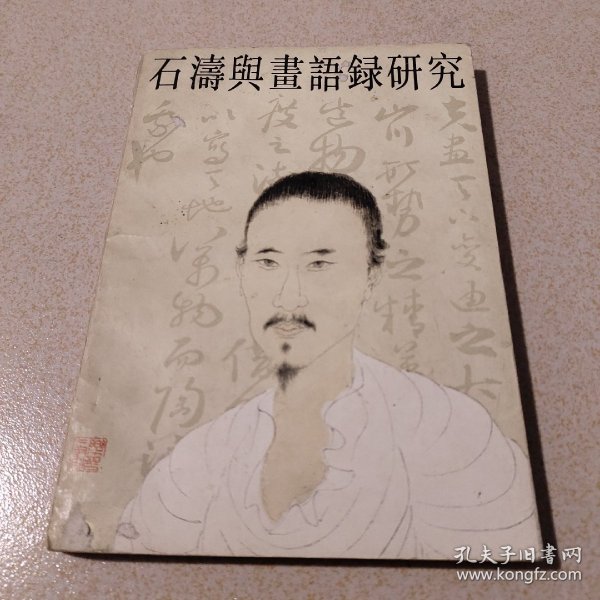 石濤與畫語録研究
夫畫天下變通之大
山川形勢之精英
造物
度之流
借
以寫天地萬物而陶泳
我也
孔夫子旧書网
www.kongfz.com